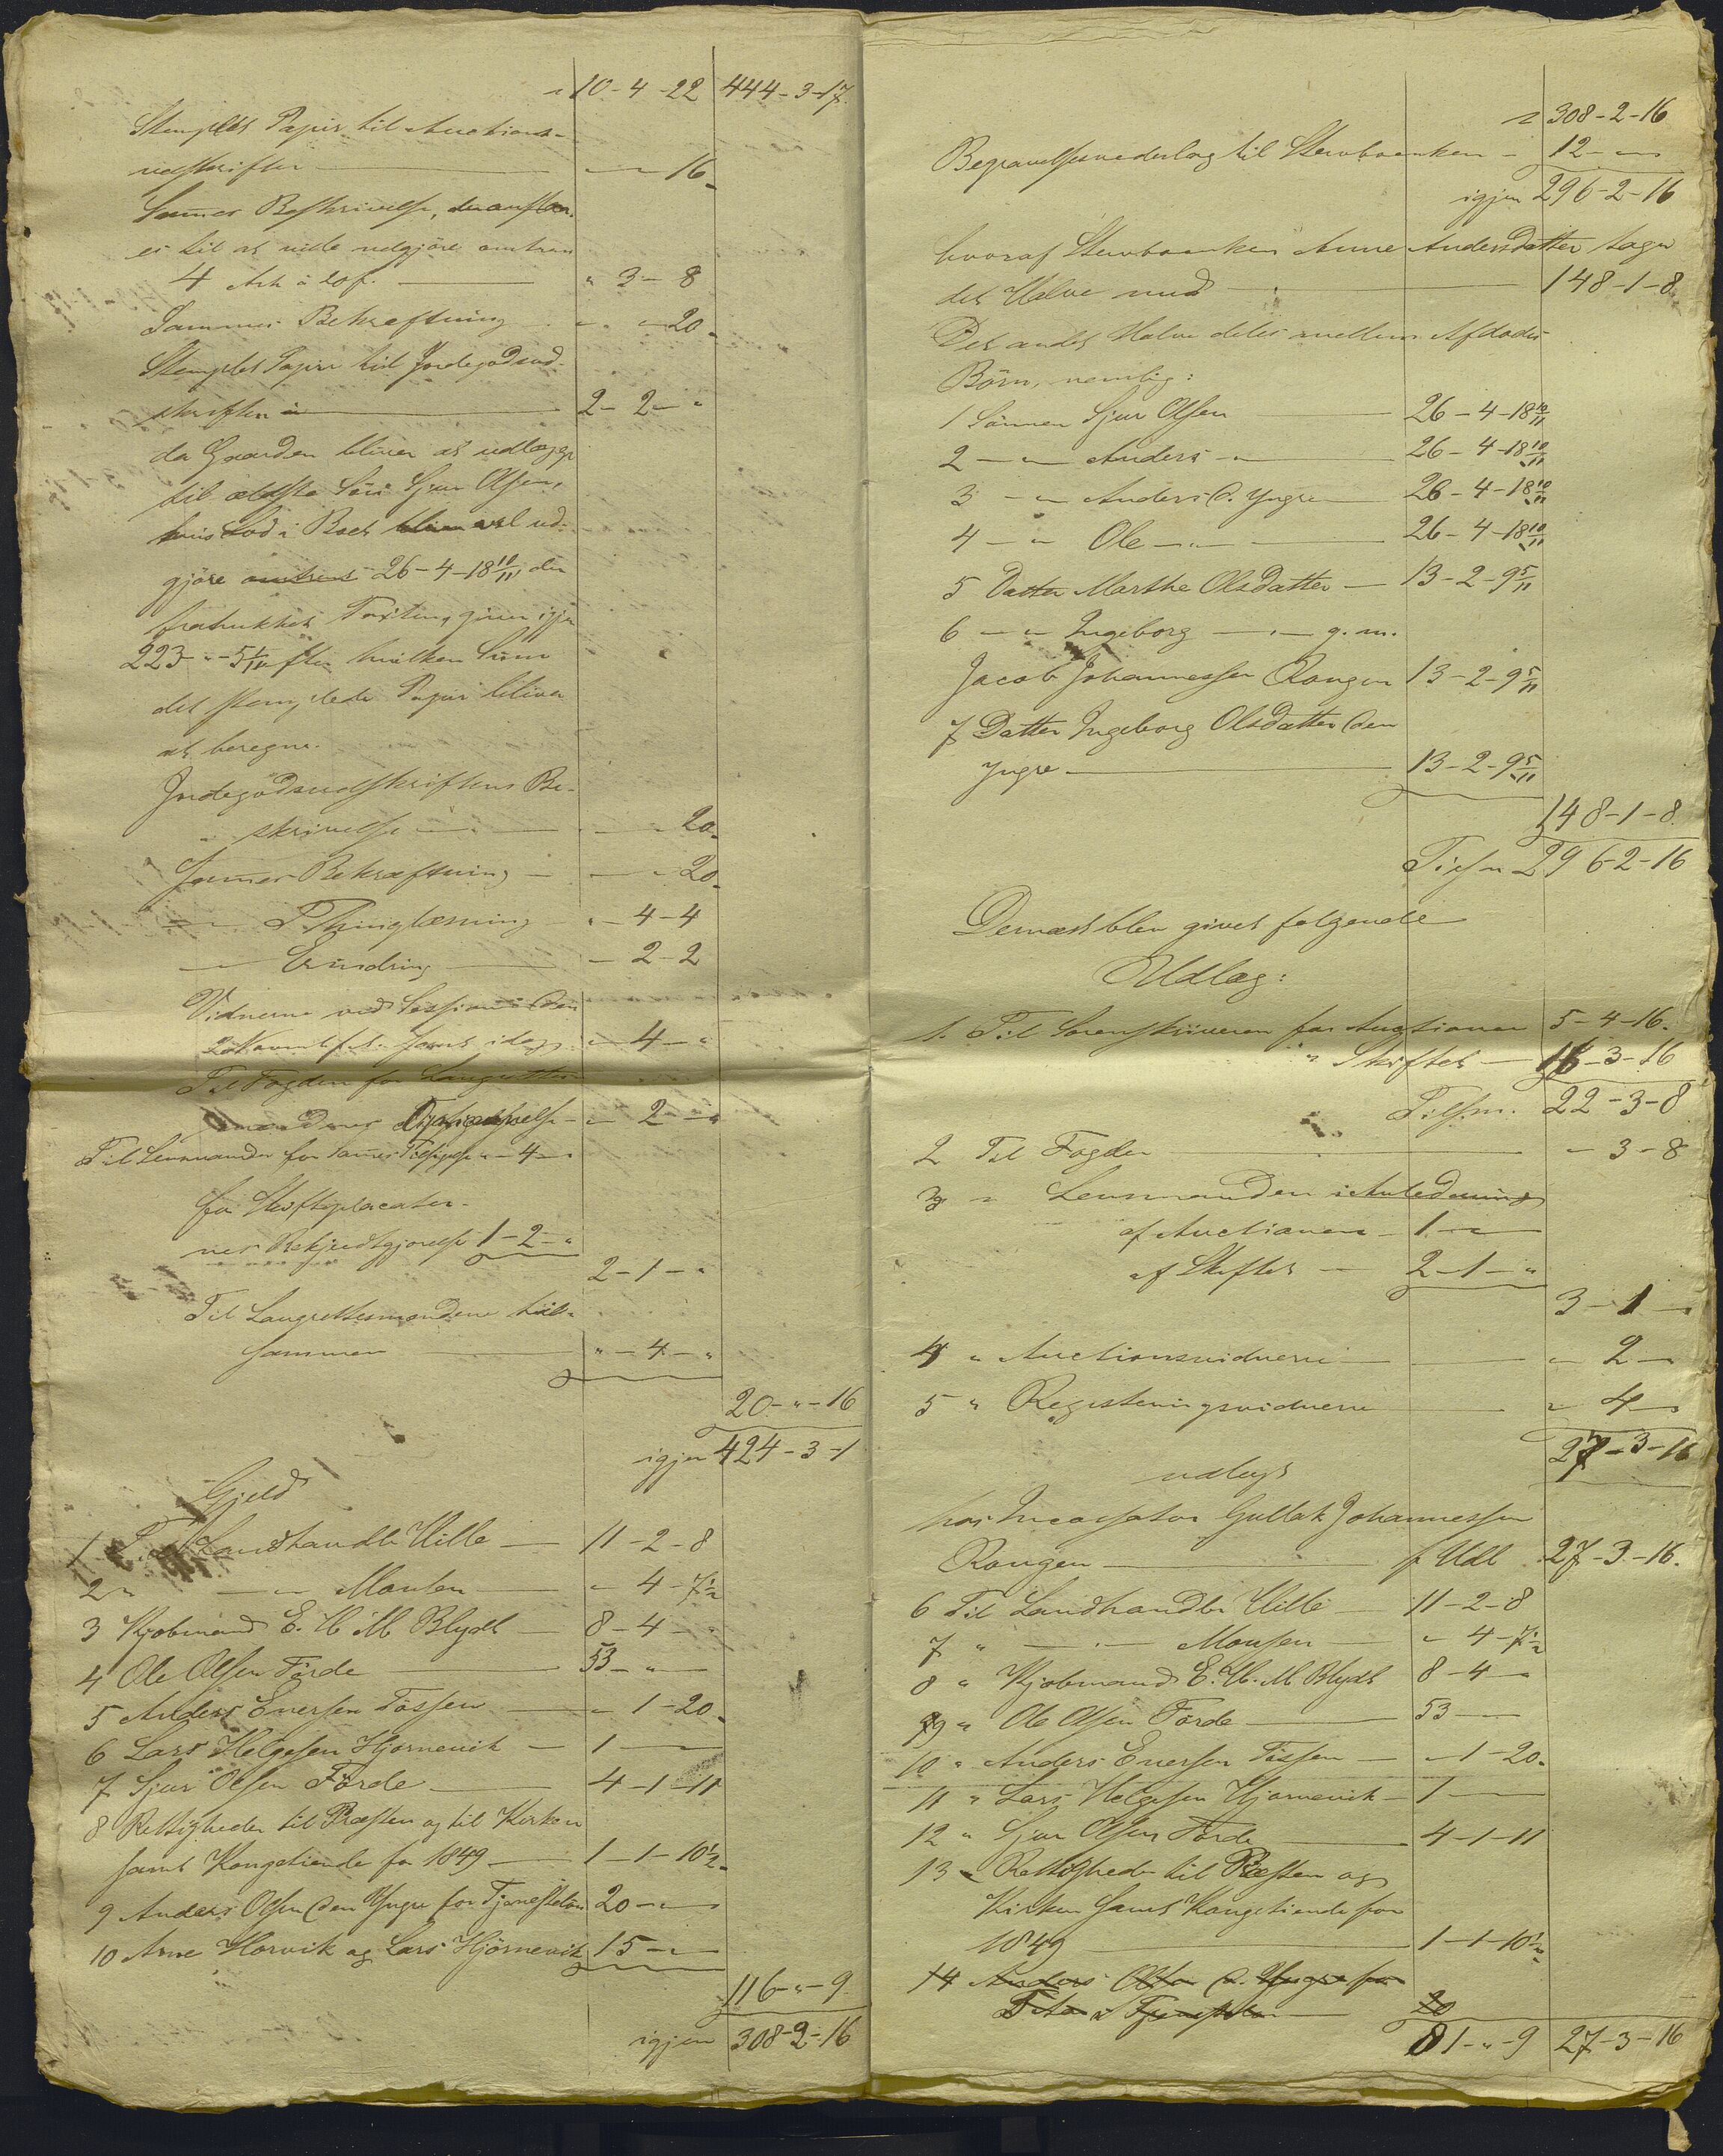 " 10-4-22 444-3-17.
Stemplet Papir til Auctions-
udskrifter — " — 16.
Sammes Beskrivelse, der ansees
til at ville udgjöre omtrent
4 Ark à 20 s. — " 3-8
Sammes Bekræftning — " — 20.
Stemplet Papir til Jordegodsud-
skriften — 2-2-"
da Gaarden bliver at udlægge
til ældste Sön Sjur Olsen,
hvis Lod i Boet vil ud-
gjöre omtrent 26-4-18 10/11 der
fratrukket Taxten, giver igjen
223-"-5 1/11 efter hvilken Sum
det stemplede Papir bliver
at beregne.
Jordegodsudskriftens Be-
skrivelse — " — 20.
Sammes Bekræftning — " — 20.
— " — Thinglæsning " — 4-4
— " — Erindring — " 2-2
Vidnerne ved Sessionen den
2 Novemb. f. A. samt idag " — 4 — "
Til Fogden for Laugrettes-
mændenes Opnævnelse — " — 2 — "
Til Lensmanden for sammes Tilsigelse " — 4 — "
for Skifteplacater-
nes Bekjendtgjörelse 1-2-"
2-1-"
Til Laugrettesmændene til-
sammen — " — 4 — "
20-"-16
igjen 424-3-1
Gjeld
1 Til Landhandler Hille — 11-2-8
2 " — " — Monsen — " 4-7½
3 Kjöbmand E. H. M. Blydt — 8-4-"
4 Ole Olsen Förde — 53-"-
5 Anders Eversen Tössen — " 1-20.
6 Lars Helgesen Hjornevik — 1 —
7 Sjur Olsen Förde — 4-1-11
8 Rettigheder til Præsten og til Kirken
samt Kongetiende for 1849 — 1-1-10½
9 Anders Olsen den Yngre for Tjenestelön 20-"-
10 Arne Horvik og Lars Hjörnevik 15-"-
116-"-9.
igjen 308-2-16
" 308-2-16
Begravelsesvederlag til Stervboenken — 12-"-
igjen 296-2-16
hvoraf Stervboenken Anne Andersdatter tager
det Halve med — 148-1-8
Det andet Halve deles mellem Afdödes
Börn, nemlig:
1 Sönnen Sjur Olsen — 26-4-18 10/11
2 — " — Anders — " — 26-4-18 10/11
3 — " — Anders O. Yngre — 26-4-18 10/11
4 — " — Ole — " — 26-4-18 10/11
5 Datter Marthe Olsdatter — 13-2-9 5/11
6 — " — Ingeborg — " — g. m.
Jacob Johannessen Rongen 13-2-9 5/11
7 Datter Ingeborg Olsdatter den
Yngre — 13-2-9 5/11
148-1-8.
Tilsm 296-2-16
Dernæst blev givet fölgende
Udlæg:
1. Til Sorenskriveren for Auctionen 5-4-16.
" Skiftet — 16-3-16
Tilsm. 22-3-8
2 Til Fogden — " — 3-8
3 " Lensmanden i Anledning
af Auctionen — 1 — "
af Skiftet — 2-1-"
3-1-"
4 " Auctionsvidnerne — " 2 — "
5 " Registeringsvidnerne — " 4 — "
27-3-16
udlagt
hos Incassator Gullak Johannessen
Rongen — f Udl 27-3-16.
6 Til Landhandler Hille — 11-2-8
7 " — " — Monsen — " 4-7½
8 " Kjöbmand E. H. M. Blydt 8-4-"
9 " Ole Olsen Förde — 53 —
10 " Anders Eversen Tössen — " 1-20.
11 " Lars Helgesen Hjornevik — 1 —
12 " Sjur Olsen Förde — 4-1-11
13 " Rettigheder til Præsten og
Kirken samt Kongetiende for
1849 — 1-1-10½
14 Anders Olsen d. Yngre for
Tjenestelön — 20
81-"-9 27-3-16